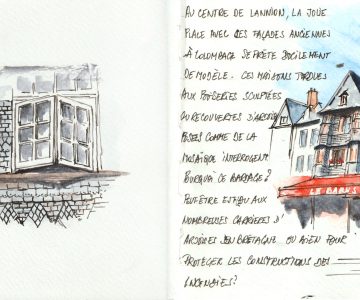 AU CENTRE DE LANNION, LA JOLIE
PLACE AVEC SES FAÇADES ANCIENNES
À COLOMBAGE SE PRÊTE DOCILEMENT
DE MODÈLE. CES MAISONS TORDUES
AUX BOISERIES SCULPTÉES
OU RECOUVERTES D'ARDOISES
POSÉES COMME DE LA
MOSAÏQUE INTERROGENT
POURQUOI CE BARDAGE?
PEUT ÊTRE EN LIEN AUX
NOMBREUSES CARRIÈRES D'
ARDOISES EN BRETAGNE. OU BIEN POUR
PROTÉGER LES CONSTRUCTIONS DES
INCENDIES?
LE BARUS